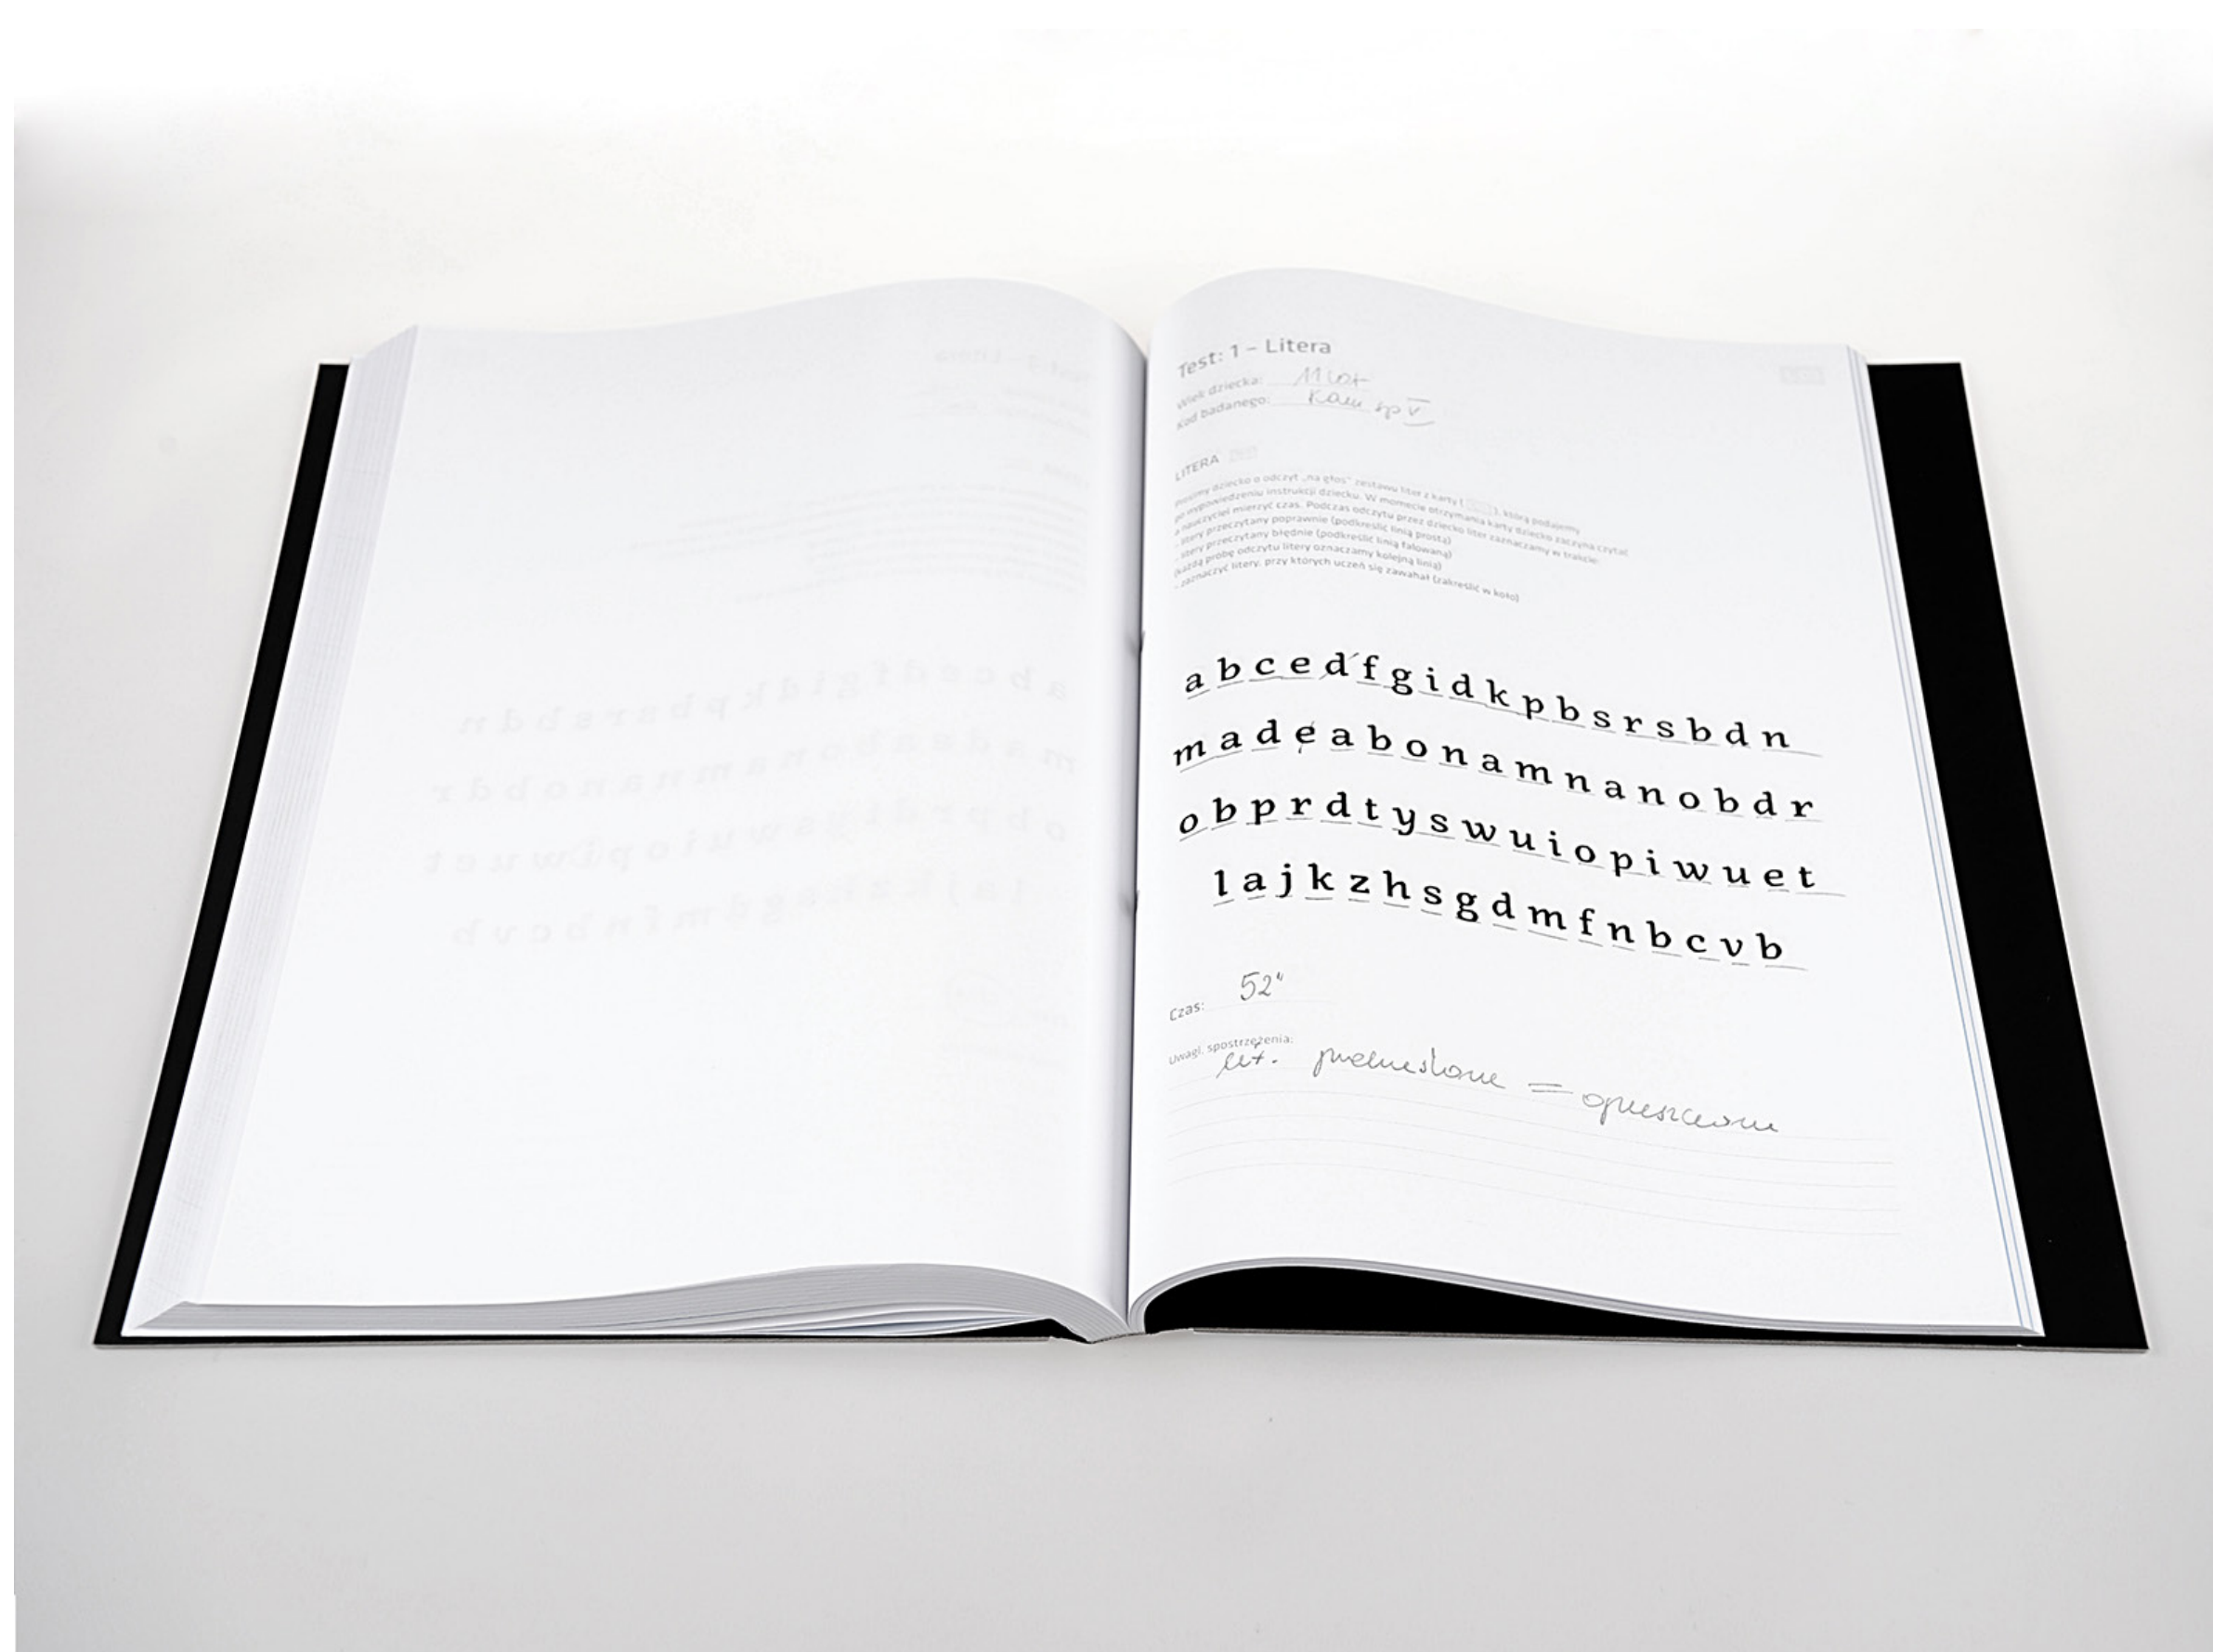 Test: 1 – Litera
Wiek dziecka: 11 lat
Kod badanego: Kam sp V
LITERA
Prosimy dziecko o odczyt „na głos” zestawu liter z karty ( ), którą podajemy
po wypowiedzeniu instrukcji dziecku. W momencie otrzymania karty dziecko zaczyna czytać
a nauczyciel mierzyć czas. Podczas odczytu przez dziecko liter zaznaczamy w trakcie:
- litery przeczytany poprawnie (podkreślić linią prostą)
- litery przeczytany błędnie (podkreślić linią falowaną)
(każdą próbę odczytu litery oznaczamy kolejną linią)
- zaznaczyć litery, przy których uczeń się zawahał (zakreślić w koło)
a b c e d f g i d k p b s r s b d n
m a d e a b o n a m n a n o b d r
o b p r d t y s w u i o p i w u e t
l a j k z h s g d m f n b c v b
Czas: 52"
Uwagi, spostrzeżenia:
lit. = opuszczone